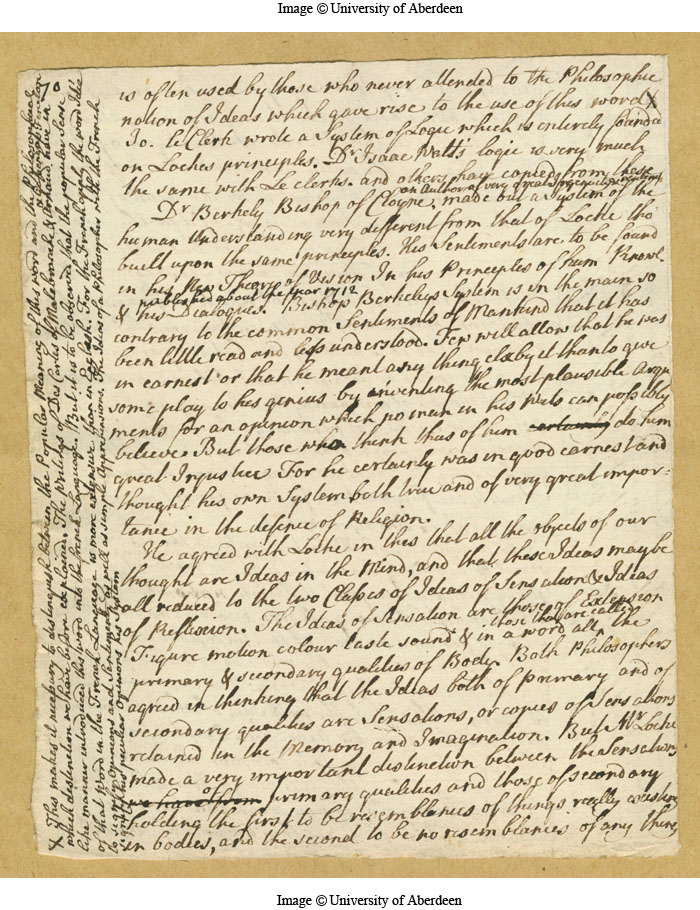 Image © University of Aberdeen
7
is often used by those who never attended to the Philosophic
notion of Ideas which gave rise to the use of this word X
Jo. Le Clerk wrote a System of Logic which is entirely founded
on Lockes principles. Dr Isaac Watts logic is very much
the same with Le Clerks. and others have copied from these
an Author of very great Ingenuity
Dr Berkely Bishop of Cloyne, made but a System of the
human Understanding very different from that of Locke tho
built upon the same principles. His Sentiments are to be found
in his New Theory of Vision In his Principles of hum Knowl
published about the year 1712
& his Dialogues. Bishop Berkeleys System is in the main so
contrary to the common Sentiments of Mankind that it has
been little read and less understood. Few will allow that he was
in earnest or that he meant any thing else by it than to give
some play to his genius by inventing the most plausible Argu
ments for an opinion which no man in his Wits can possibly
believe. But those who think thus of him certainly do him
great Injustice For he certainly was in good earnest and
thought his own System both true and of very great impor=
tance in the defence of Religion.
He agreed with Locke in this that all the objects of our
thought are Ideas in the Mind, and that these Ideas may be
all reduced to the two Classes of Ideas of Sensation & Ideas
of Reflexion. The Ideas of Sensation are those of Extension
those that are called
Figure motion colour taste sound & in a word all the
primary & secondary qualities of Body. Both Philosophers
agreed in thinking that the Ideas both of primary and of
secondary qualities are Sensations, or copies of Sensations
retained in the Memory and Imagination. But Mr Locke
made a very important distinction between the Sensations
we have from primary qualities and those of secondary
holding the first to be resemblances of things really existing
in bodies, and the second to be no resemblances of any thing
X This makes it necessary to distinguish between the Popular Meaning of this word and the Philosophical
which distinction we have before explained. The Writings of Des Cartes of Malebranche & Arnauld, have in
like manner introduced this word into the French Language. But it is to be observed that the popular Sense
of that Word in the French Language is more extensive than in English. For the French use the word Idée
to signify Opinions and Sentiments as well as simple Apprehensions. The Ideas of a Philosopher with the French
signify his peculiar Opinions his System
Image © University of Aberdeen